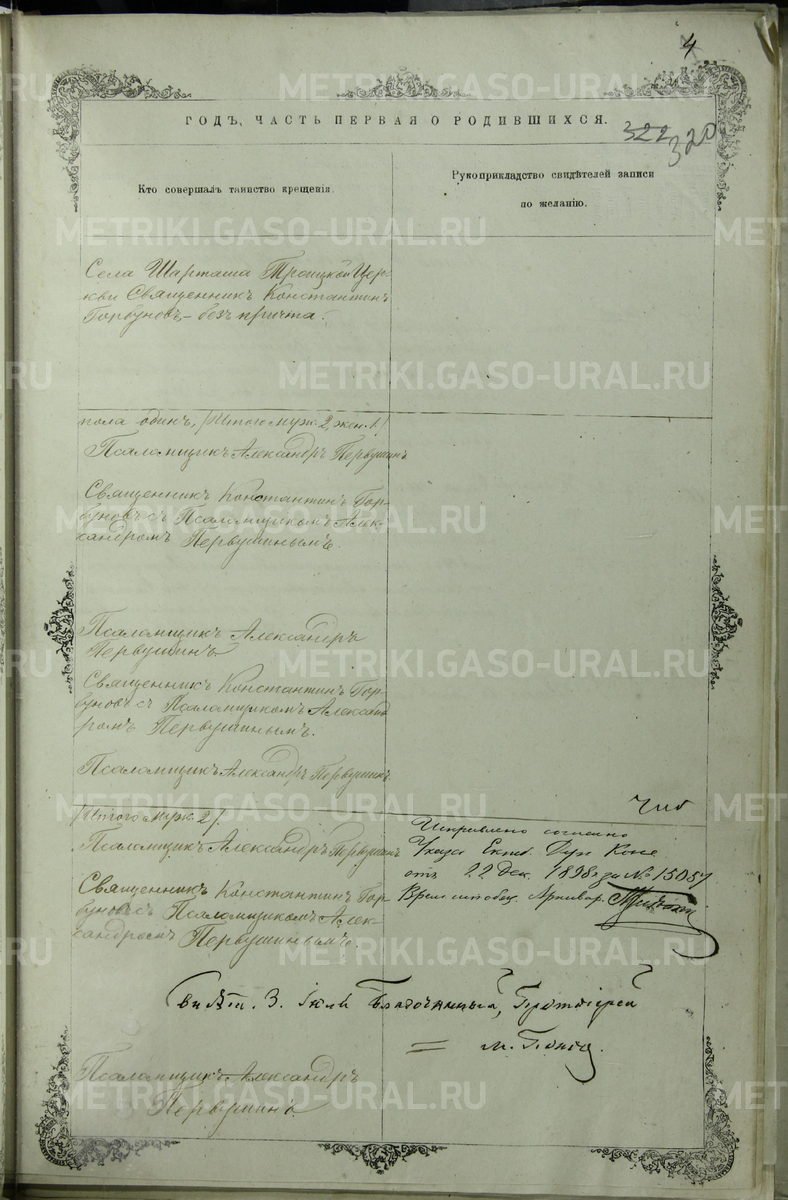 4
ГОДЪ, ЧАСТЬ ПЕРВАЯ О РОДИВШИХСЯ.
322 320
Кто совершалъ таинство крещенія.
Рукоприкладство свидѣтелей записи
по желанію.
Села Шарташа Троицкой Цер-
кви Священникъ Константинъ
Горбуновъ - безъ причта.
пола одинъ, /Итого муж. 2, жен. 1./
Псаломщикъ Александръ Первушинъ
Священникъ Константинъ Гор-
буновъ съ Псаломщикомъ Алек-
сандромъ Первушинымъ.
Псаломщикъ Александръ
Первушинъ
Священникъ Константинъ Гор-
буновъ съ Псаломщикомъ Александ
ромъ Первушинымъ.
Псаломщикъ Александръ Первушинъ
/Итого муж. 2/.
Псаломщикъ Александръ Первушинъ
Священникъ Константинъ Гор-
буновъ съ Псаломщикомъ Алек-
сандромъ Первушинымъ.
Исправлено согласно
Указа Екат. Дух. Конс.
отъ 22 Дек. 1898 г. за № 15057
Архивар.
Благочинный, Протоіерей
Псаломщикъ Александръ
Первушинъ
METRIKI.GASO-URAL.RU